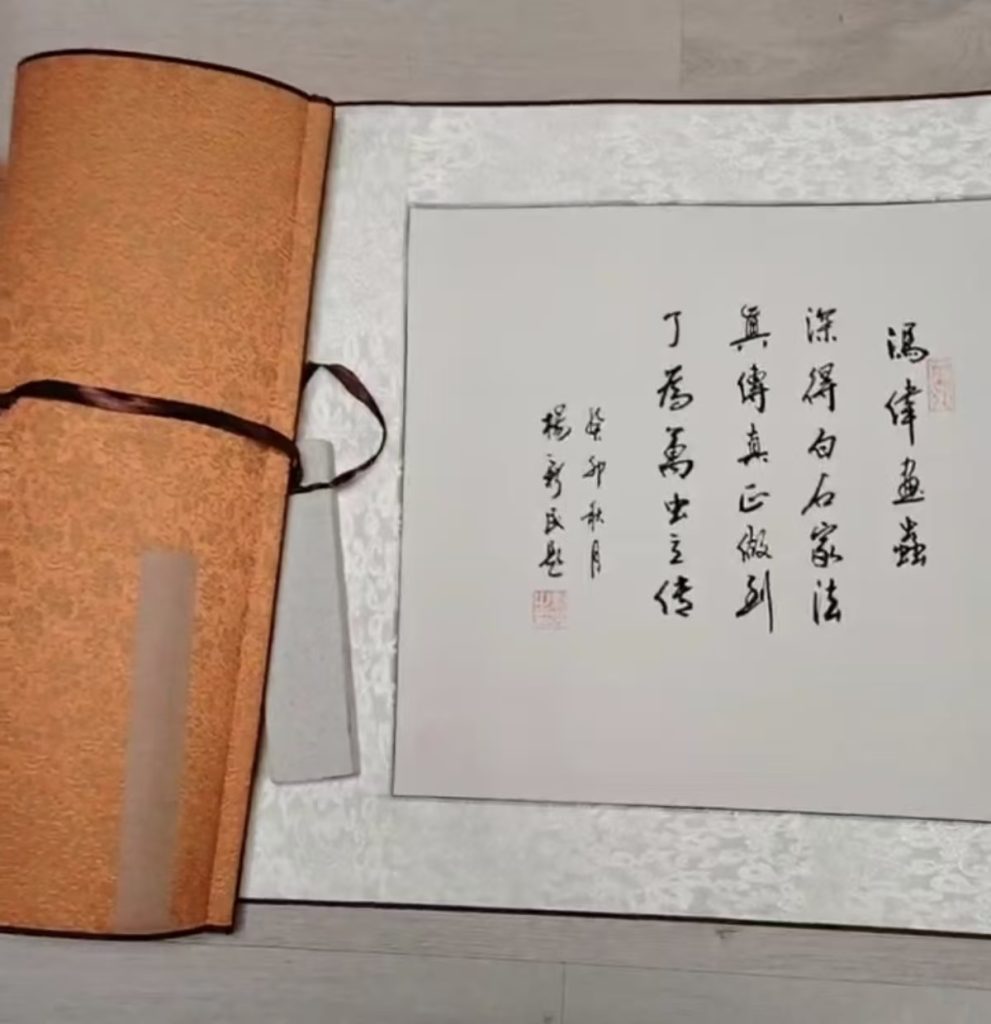 馮偉畫蟲
深得白石家法
真傳真正做到
了為萬虫立传
癸卯秋月
楊新民題